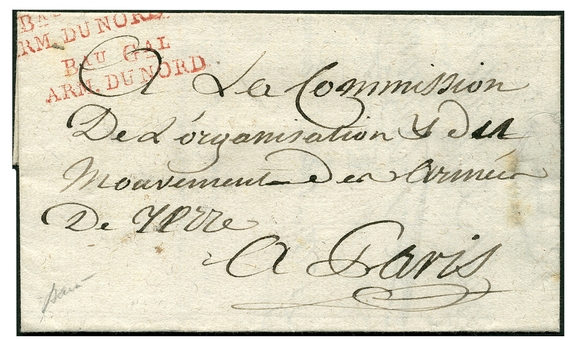 BAU GAL
ARM. DU NORD
BAU GAL
ARM. DU NORD
A La Commission
De L'organisation & du
Mouvement des Armées
De Terre
A Paris